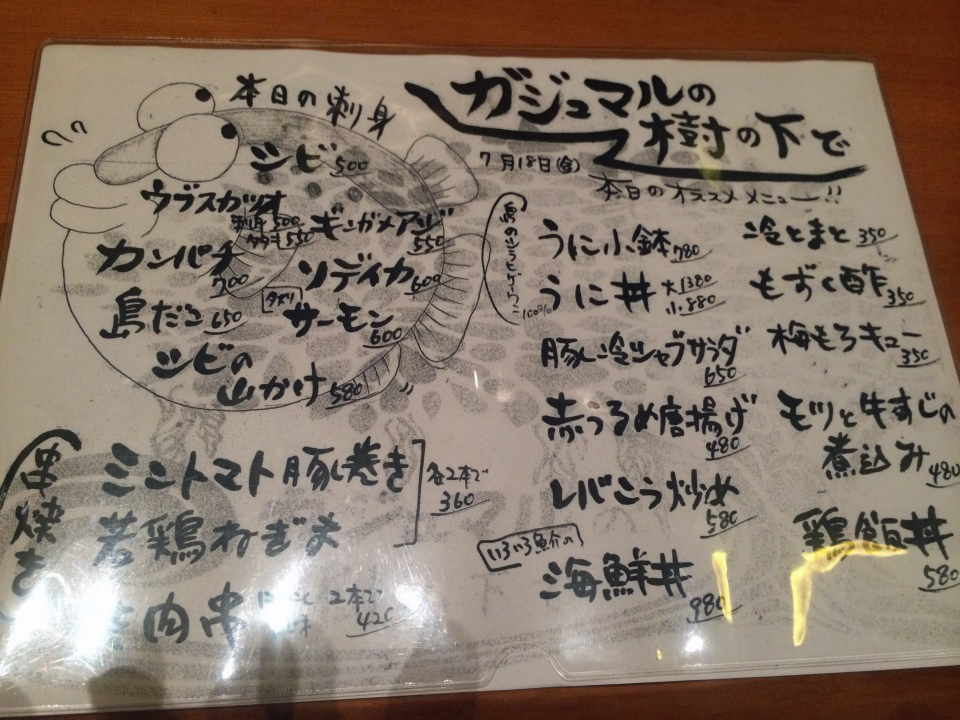 ガジュマルの
樹の下で
7月18日(金)
本日のオススメメニュー!!
本日の刺身
シビ 500
ウブスガツオ
刺身 500
タタキ 550
ギンガメアジ 550
カンパチ 700
ソデイカ 600
島だこ 650
サーモン 600
シビの
山かけ 580
島のシラヒゲウニ100%
うに小鉢 780
うに丼 大1380
小880
豚しゃぶ冷シャブサラダ 650
赤うるめ唐揚げ 480
レバにら炒め 580
いろいろ魚介の
海鮮丼 980
冷とまと 350
もずく酢 350
梅もろキュー 350
モツと牛すじの
煮込み 480
鶏飯丼 580
串焼き
ミニトマト豚巻き
若鶏ねぎま
各2本で
360
肉串
2本で
420